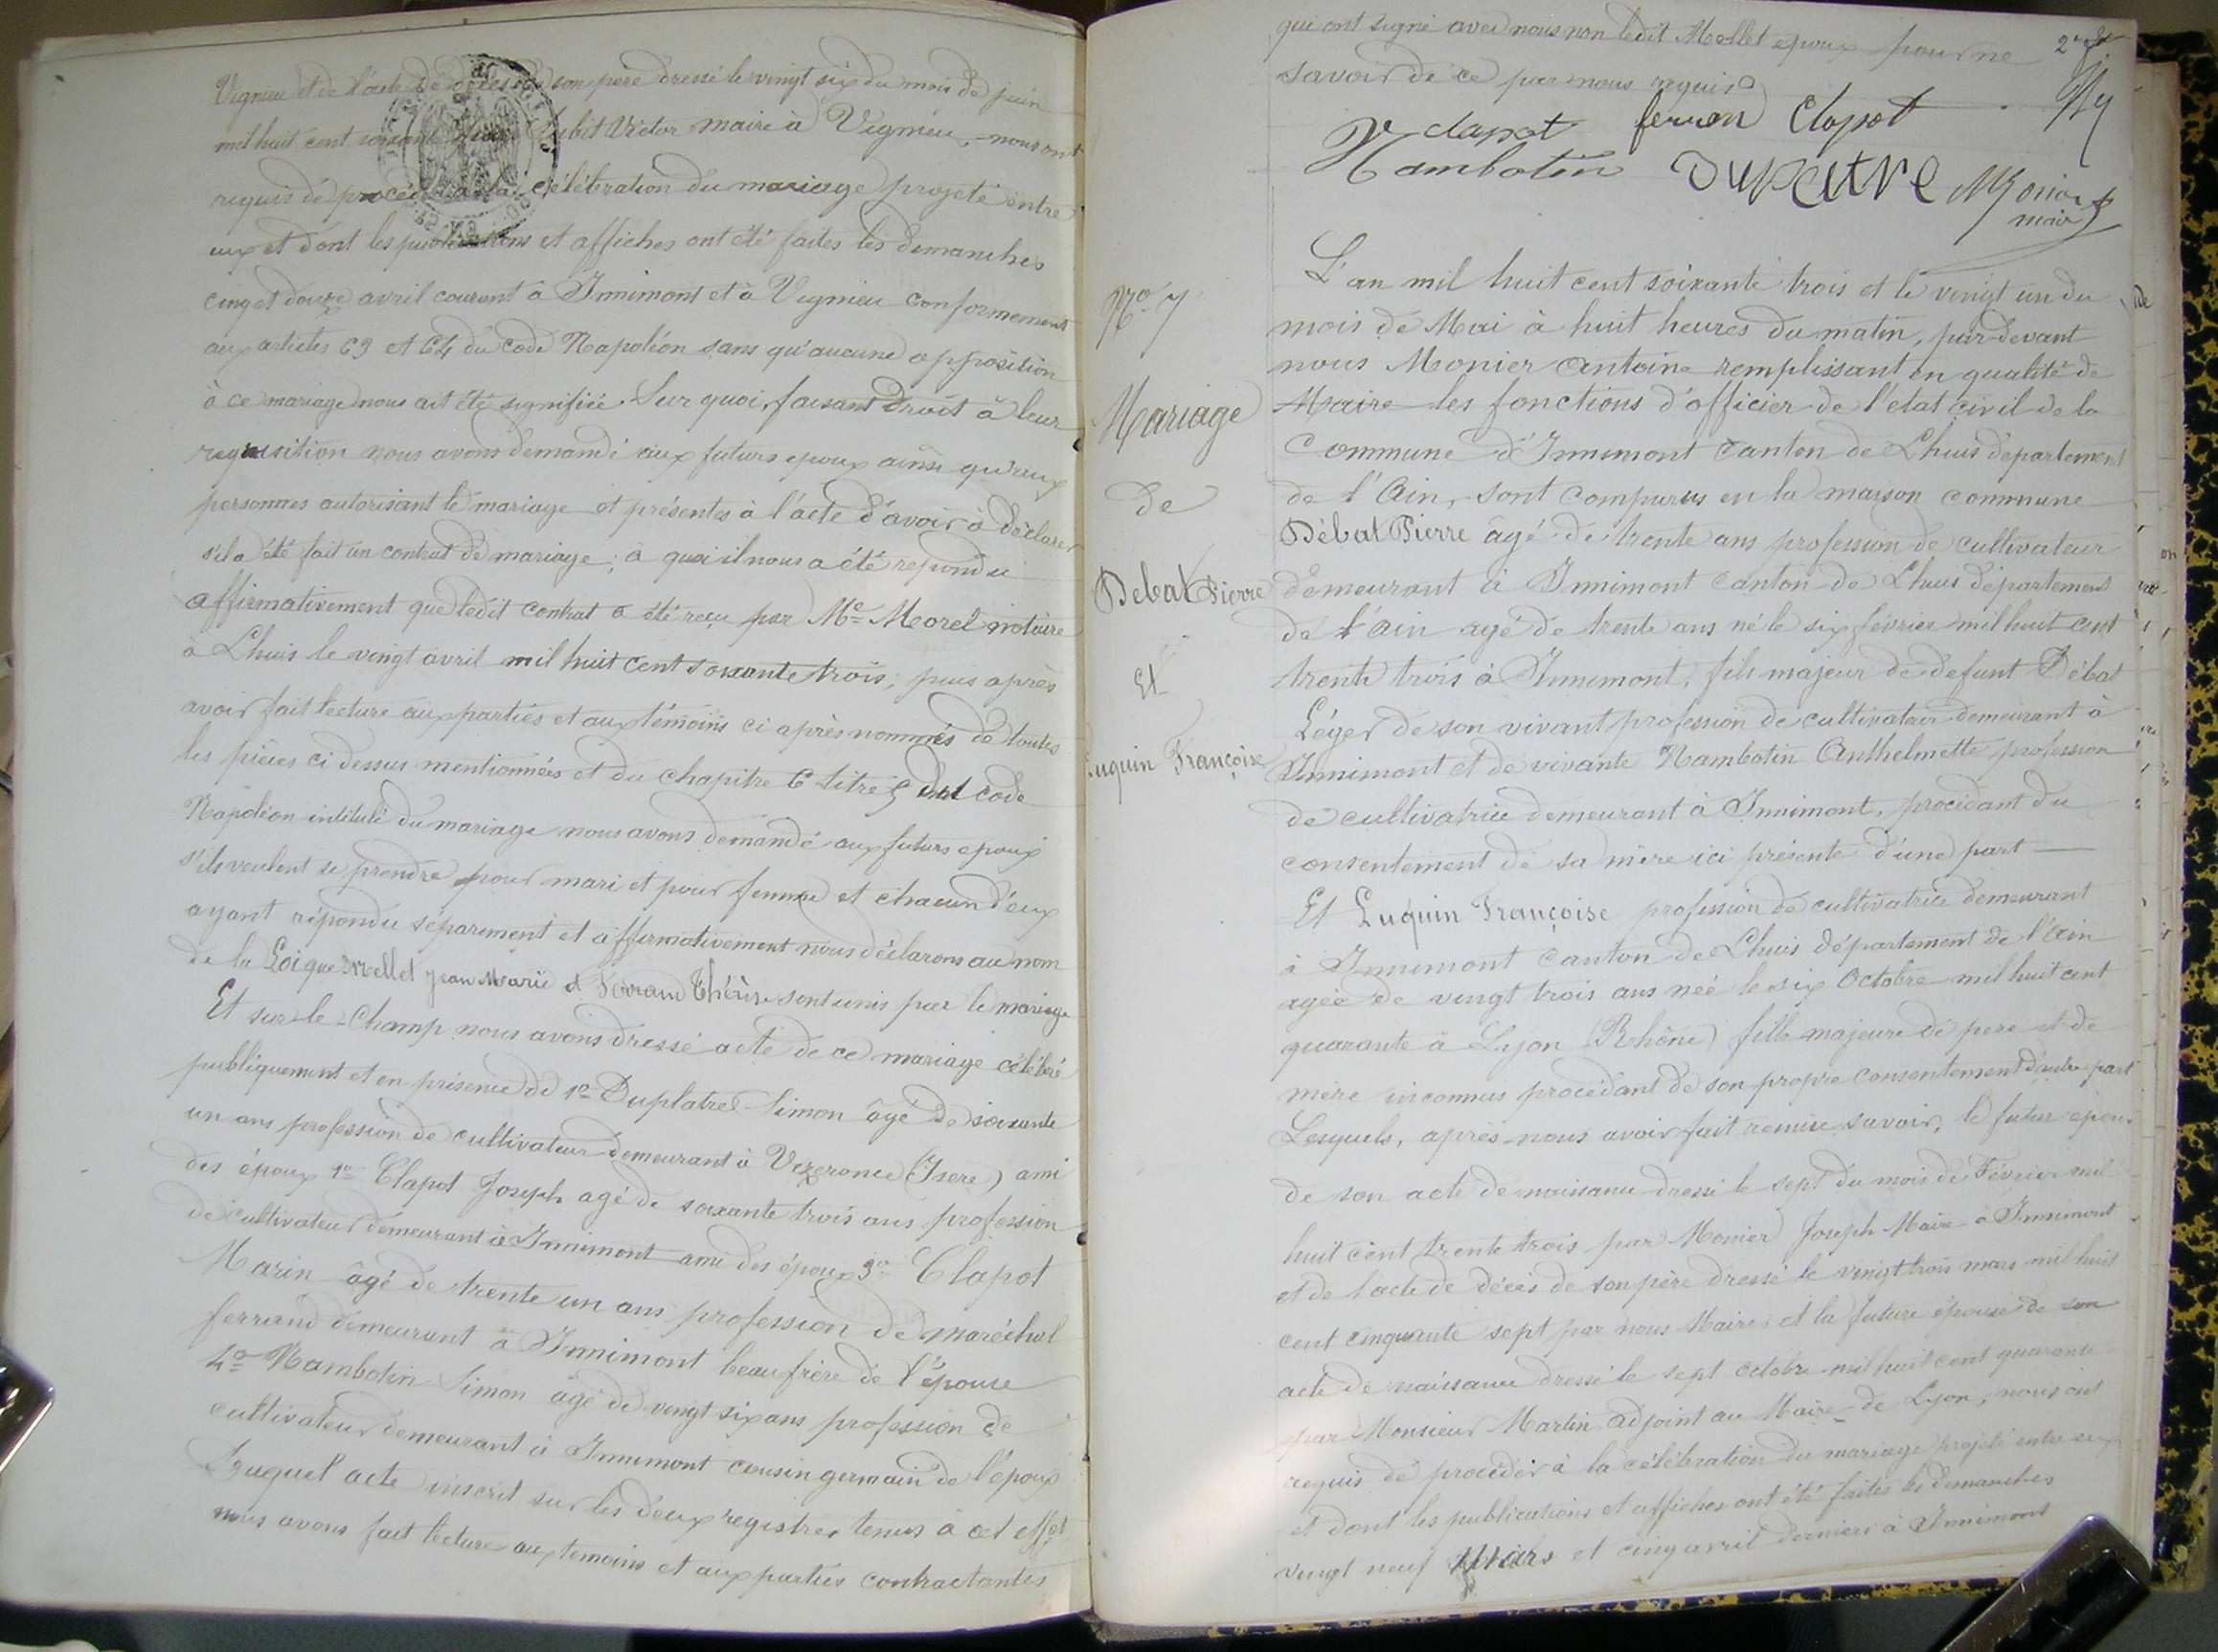 Vignieu et de l'acte de décès de son père dressé le vingt six du mois de juin
mil huit cent soixante Victor maire à Vignieu, nous ont
requis de procéder à la célébration du mariage projeté entre
eux et dont les publications et affiches ont été faites les dimanches
cinq et douze avril courant à Innimont et à Vignieu conformement
aux articles 63 et 64 du code Napoléon sans qu'aucune opposition
à ce mariage nous ait été signifiée. Sur quoi, faisant droit à leur
requisition nous avons demandé aux futurs epoux ainsi qu'aux
personnes autorisant le mariage et présentes à l'acte d'avoir à déclarer
s'il a été fait un contrat de mariage; à quoi il nous a été repondu
affirmativement que ledit contrat a été reçu par Me Morel notaire
à Lhuis le vingt avril mil huit cent soixante trois; puis après
avoir fait lecture aux parties et aux témoins ci après nommés de toutes
les pièces ci dessus mentionnées et du chapitre 6 titre 5 du code
Napoléon intitulé du mariage nous avons demandé aux futurs epoux
s'ils veulent se prendre pour mari et pour femme et chacun d'eux
ayant répondu séparement et affirmativement nous déclarons au nom
de la Loi que Mellet Jean Marie et Ferrand Thérèse sont unis par le mariage
Et sur-le-Champ nous avons dressé acte de ce mariage célébré
publiquement et en présence de 1º Duplatre Simon âgé de soixante
un ans profession de cultivateur demeurant à Vezeronce (Isere) ami
des époux 2º Clapot Joseph agé de soixante trois ans profession
de cultivateur demeurant à Innimont ami des époux 3º Clapot
Marin âgé de trente un ans profession de maréchal
ferrand demeurant à Innimont beau frère de l'épouse
4º Nambotin Simon âgé de vingt six ans profession de
cultivateur demeurant à Innimont cousin germain de l'époux
Duquel acte inscrit sur les deux registres tenus à cet effet
nous avons fait lecture aux temoins et aux parties contractantes
qui ont signé avec nous non ledit Mellet epoux pour ne
savoir de ce par nous requis
clapot ferran Clapot
Nambotin Duplatre Monier
maire
Nº 7
Mariage
de
Debat Pierre
Et
Luquin Françoise
L'an mil huit cent soixante trois et le vingt un du
mois de Mai à huit heures du matin, par devant
nous Monier Antoine remplissant en qualité de
Maire les fonctions d'officier de l'état civil de la
Commune d'Innimont Canton de Lhuis departement
de l'Ain, sont comparus en la maison commune
Débat Pierre âgé de trente ans profession de cultivateur
demeurant à Innimont Canton de Lhuis département
de l'Ain agé de trente ans né le six février mil huit cent
trente trois à Innimont, fils majeur de defunt Débat
Léger de son vivant profession de cultivateur demeurant à
Innimont et de vivante Nambotin Anthelmette profession
de cultivatrice demeurant à Innimont, procédant du
consentement de sa mère ici présente d'une part
Et Luquin Françoise profession de cultivatrice demeurant
à Innimont Canton de Lhuis département de l'Ain
agée de vingt trois ans née le six Octobre mil huit cent
quarante à Lyon (Rhône) fille majeure de pere et de
mère inconnus procédant de son propre consentement d'autre part
Lesquels, après nous avoir fait remise savoir, le futur époux
de son acte de naissance dressé le sept du mois de Février mil
huit cent trente trois par Monier Joseph Maire à Innimont
et de l'acte de décès de son père dressé le vingt trois mars mil huit
cent cinquante sept par nous Maire; et la future épouse de son
acte de naissance dressé le sept octobre mil huit cent quarante
par Monsieur Martin adjoint au Maire de Lyon, nous ont
requis de procéder à la célébration du mariage projeté entre eux
et dont les publications et affiches ont été faites les dimanches
vingt neuf Mars et cinq avril derniers à Innimont